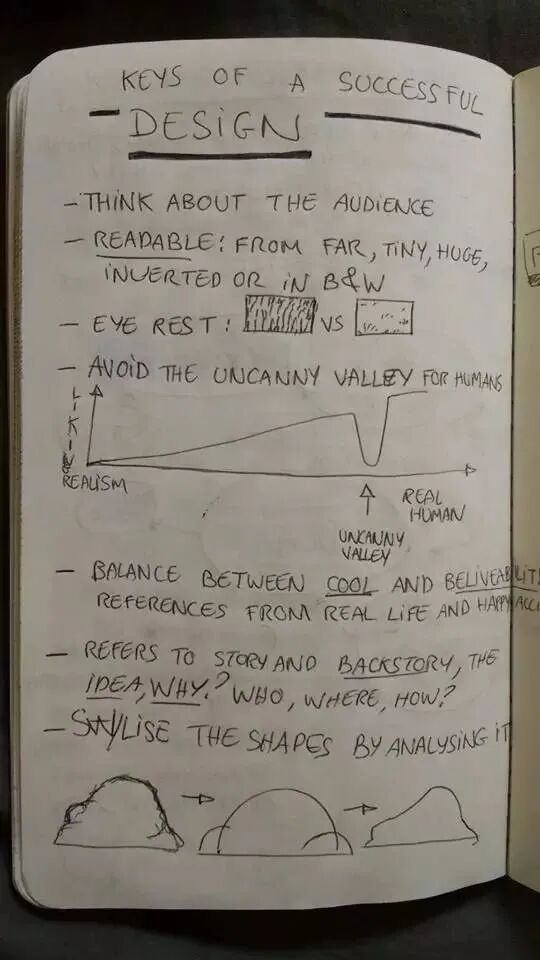 KEYS OF A SUCCESSFUL
DESIGN
- THINK ABOUT THE AUDIENCE
- READABLE: FROM FAR, TINY, HUGE,
INVERTED OR IN B&W
- EYE REST: VS
- AVOID THE UNCANNY VALLEY FOR HUMANS
LIKIN
REALISM
REAL
HUMAN
UNCANNY
VALLEY
- BALANCE BETWEEN COOL AND BELIVEABILIT
REFERENCES FROM REAL LIFE AND HAPPY ACCI
- REFERS TO STORY AND BACKSTORY, THE
IDEA, WHY? WHO, WHERE, HOW?
- STYLISE THE SHAPES BY ANALYSING IT